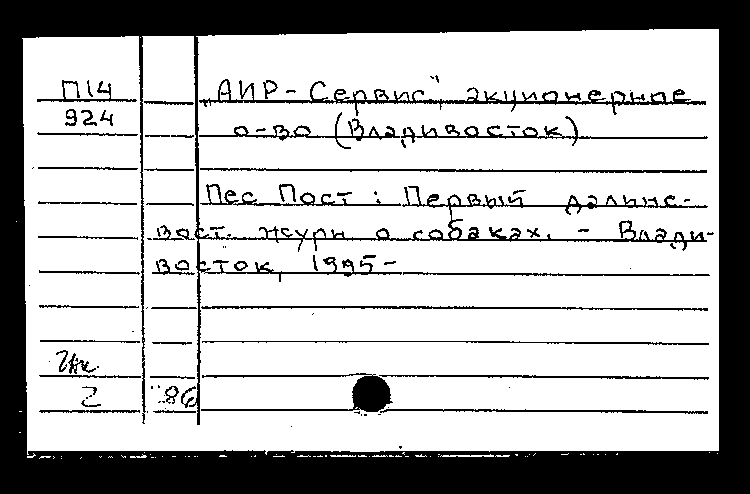 П14
924
„АИР-Сервис", акционерное
о-во (Владивосток)
Пес Пост : Первый дальне-
вост. журн о собаках. - Влади-
восток, 1995-
2 "86